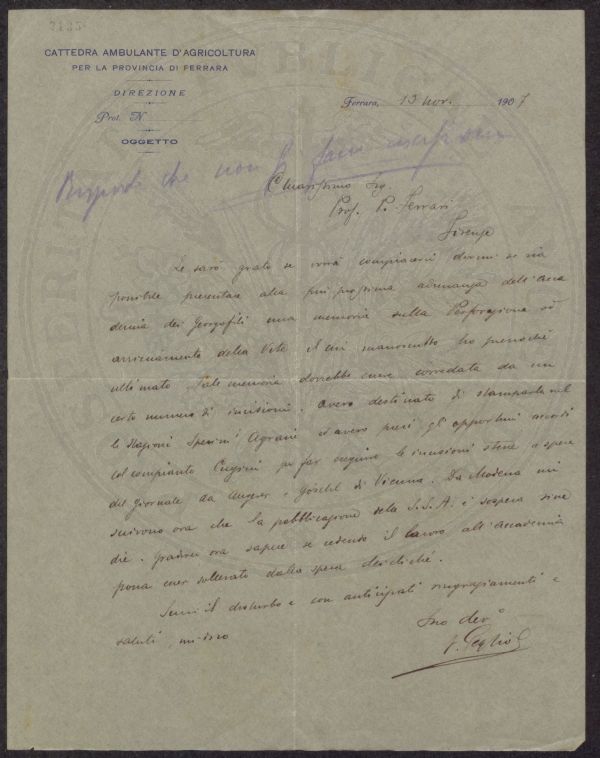 3135
CATTEDRA AMBULANTE D'AGRICOLTURA
PER LA PROVINCIA DI FERRARA
DIREZIONE
Prot. N.
OGGETTO
Ferrara, 13 nov. 1907
Risponde che non
Chiarissimo Sig.
Prof. P. Ferrari
Firenze
Le sarò grato se vorrà compiacersi dirmi se sia
possibile presentare alla più prossima adunanza dell'Acca
demia dei Georgofili una memoria sulla Perforazione od
arricciamento della Vite il cui manoscritto ho pressoché
ultimato. Tale memoria dovrebbe essere corredata da un
certo numero di incisioni. Avevo destinato di stamparla nel
le Stazioni Sperim. Agrarie ed avevo presi gli opportuni accordi
col compianto Cugini per far eseguire le incisioni stesse a spese
del giornale da Angerer e Göschl di Vienna. Da Modena mi
scrivono ora che la pubblicazione delle S.S.A. è sospesa sine
die. Gradirei ora sapere se cedendo il lavoro all'Accademia
possa esser sollevato dalla spesa dei clichés.
Scusi il disturbo e con anticipati ringraziamenti e
saluti, mi dico
Suo dev.º
V. Peglion